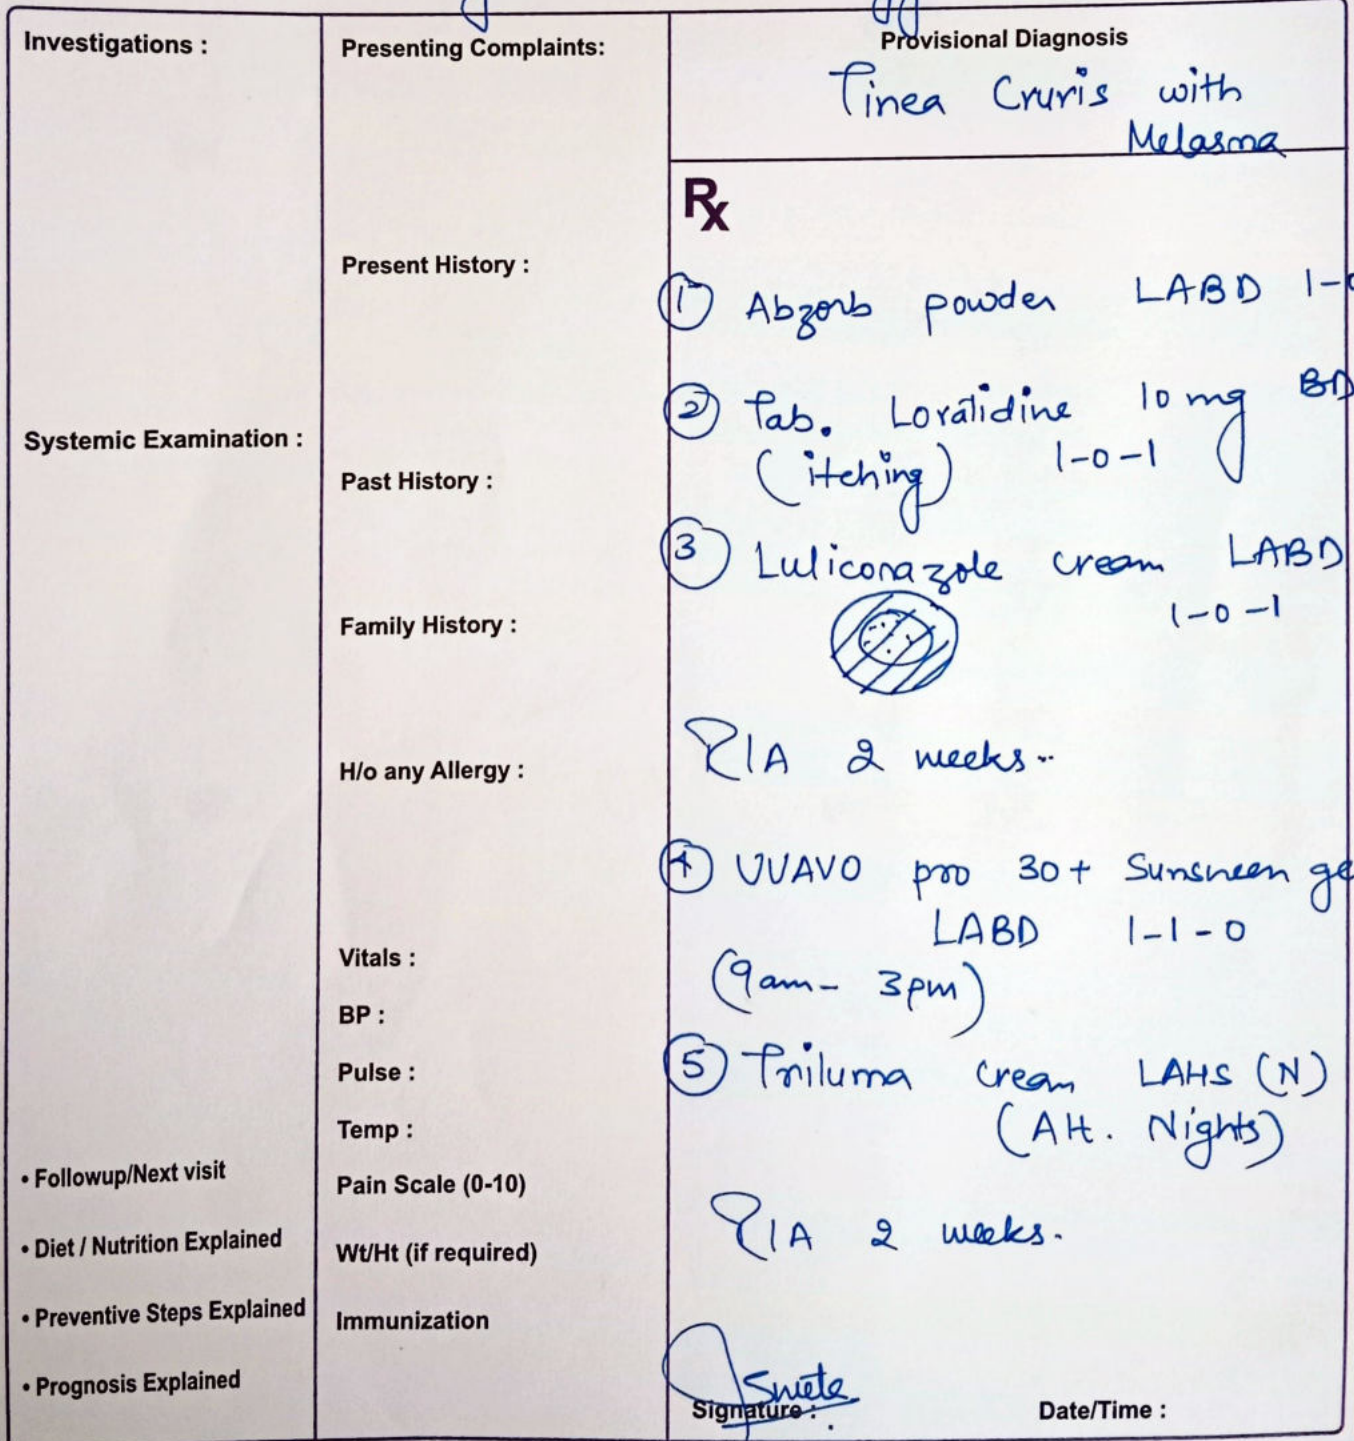 Investigations :
Systemic Examination :
• Followup/Next visit
• Diet / Nutrition Explained
• Preventive Steps Explained
• Prognosis Explained
Presenting Complaints:
Present History :
Past History :
Family History :
H/o any Allergy :
Vitals :
BP :
Pulse :
Temp :
Pain Scale (0-10)
Wt/Ht (if required)
Immunization
Provisional Diagnosis
Tinea Cruris with
Melasma
Rx
① Abzorb powder LABD 1-
② Tab. Loratidine 10 mg BD
(itching) 1-0-1
③ Luliconazole cream LABD
1-0-1
R/A 2 weeks..
④ UVAVO pro 30+ Sunscreen ge
LABD 1-1-0
(9am- 3pm)
⑤ Triluma cream LAHS (N)
(Alt. Nights)
R/A 2 weeks.
Signature :
Date/Time :